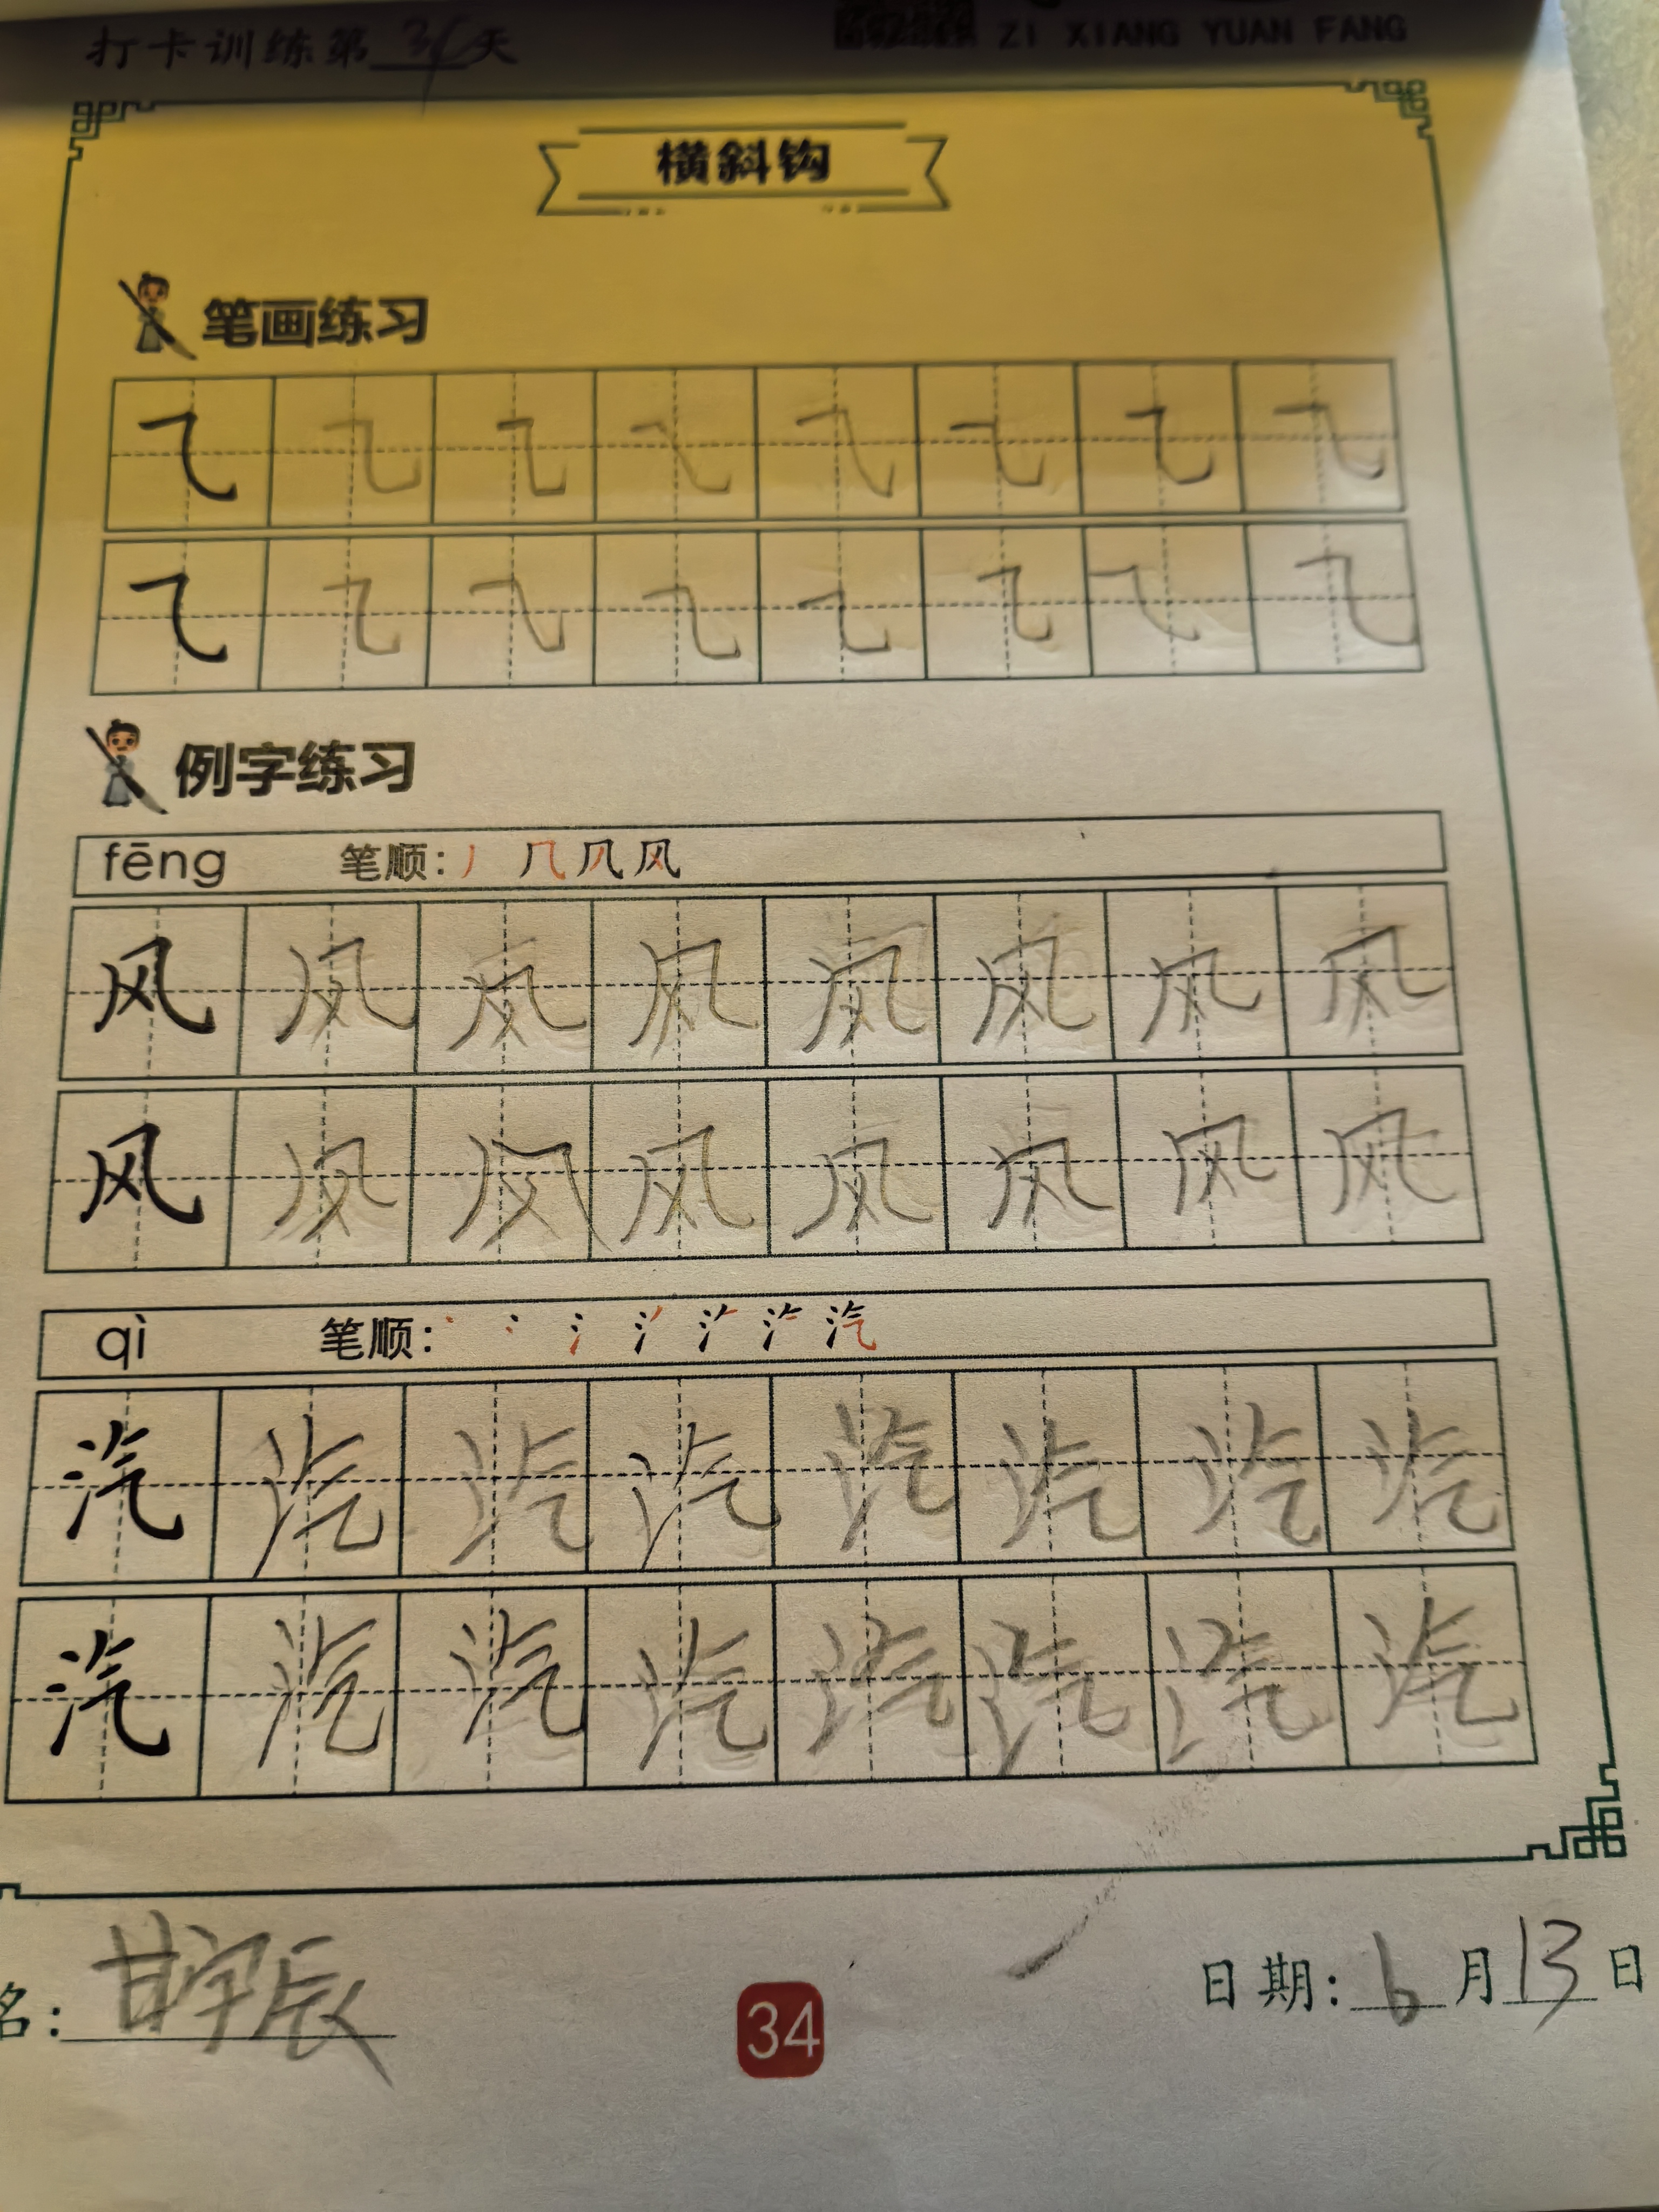 打卡训练第34天
ZI XIANG YUAN FANG
横斜钩
笔画练习
例字练习
fēng 笔顺：丿 几 凨 风
风 风 风 风 风 风 风 风
风 风 风 风 风 风 风 风
qì 笔顺：
汽 汽 汽 汽 汽 汽 汽 汽
汽 汽 汽 汽 汽 汽 汽 汽
名：甘宇辰
34
日期：6月13日